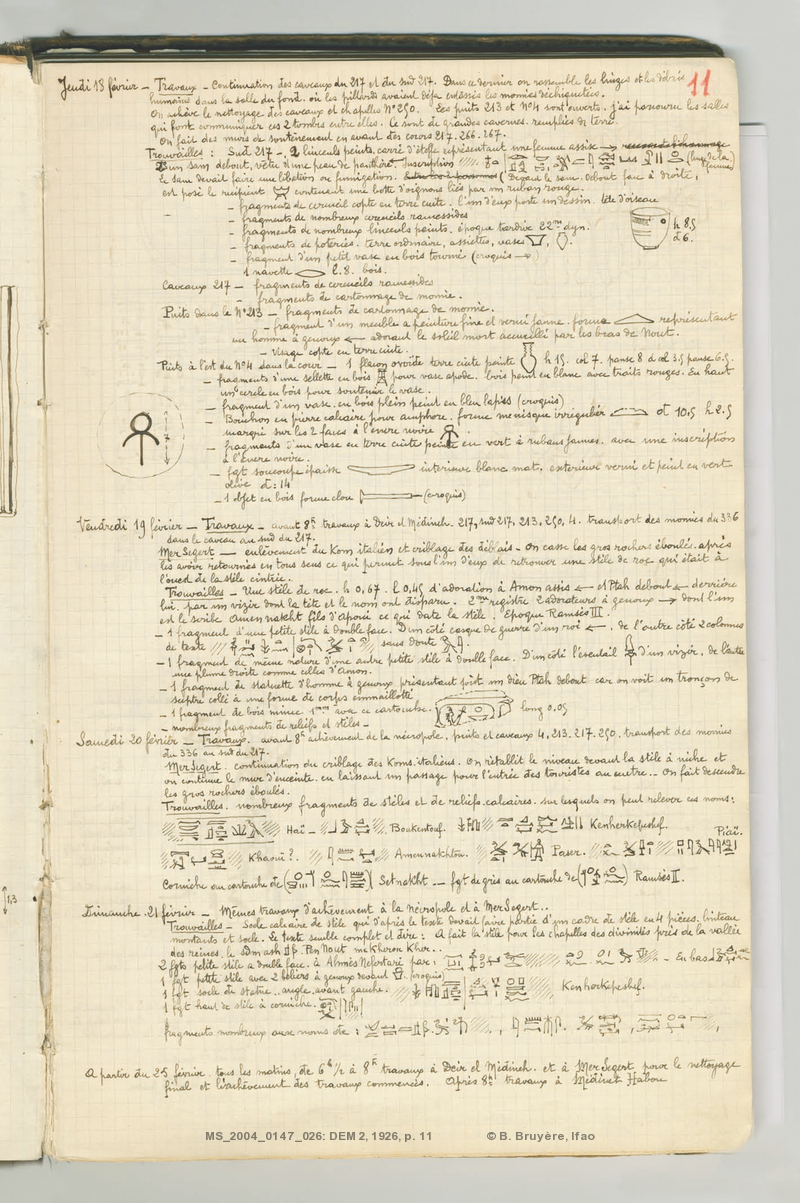 11
Jeudi 18 février – Travaux – Continuation des caveaux du 217 et du sud 217. Dans ce dernier on rassemble les linges et les débris
humains dans la salle du fond. où les pillards avaient déjà entassé les momies déchiquetées.
On achève le nettoyage des caveaux et chapelles N° 250. Les puits 213 et N° 4 sont ouverts. j'ai parcouru les salles
qui font communiquer ces 2 tombes entre elles. Ce sont de grandes cavernes remplies de terre.
On fait des murs de soutènement en avant des cours 217. 266. 267.
Trouvailles : Sud 217 – 2 linceuls peints, carré d'étoffe représentant une femme assise →
D'un sam debout, vêtu d'une peau de panthère. Inscription
le sam devait faire une libation ou fumigation. (Devant le sam debout face à droite,
est posé le récipient contenant une botte d'oignons liés par un ruban rouge.
– fragments de cercueil copte en terre cuite. l'un d'eux porte un dessin. tête d'oiseau
– fragments de nombreux cercueils ramessides
– fragments de nombreux linceuls peints. époque tardive 22me dyn.
– fragments de poteries. terre ordinaire, assiettes, vases
– fragment d'un petit vase en bois tourné (croquis →)
h 8.5
d 6.
1 navette l. 8. bois.
Caveaux 217 – fragments de cercueils ramessides
– fragments de cartonnage de momie.
Puits dans le N° 213 – fragments de cartonnage de momie.
– fragment d'un meuble à peinture fine et verni jaune. forme représentant
un homme à genoux ← adorant le soleil mort accueilli par les bras de Nout.
– Visage copte en terre cuite.
Puits à l'est du N° 4 dans la cour – 1 flacon ovoïde terre cuite peinte h 15. col 7. panse 8 d col 3.5 panse 6.5.
– fragments d'une sellette en bois pour vase apode. bois peint en blanc avec traits rouges. En haut
un cercle en bois pour soutenir le vase.
– fragment d'un vase en bois plein peint en bleu lapis (croquis)
– Bouchon en pierre calcaire pour amphore. forme ménisque irrégulier d 10.5 h 2.5
marqué sur les 2 faces à l'encre noire
– fragments d'un vase en terre cuite peinte en vert à rubans jaunes. avec une inscription
à l'encre noire.
– fgt soucoupe épaisse intérieur blanc mat. extérieur verni et peint en vert
olive d : 14
– 1 objet en bois forme clou (croquis)
7
Vendredi 19 février – Travaux – avant 8h travaux à Deir el Médineh. 217, sud 217, 213, 250, 4. transport des momies du 336
dans le caveau au sud du 217.
Mer Segert – enlèvement du Kom italien et criblage des déblais – On casse les gros rochers éboulés après
les avoir retournés en tous sens ce qui permit sous l'un d'eux de retrouver une stèle de roc qui était à
l'oued de la stèle cintrée.
Trouvailles – Une stèle de roc. h 0,67. l 0,45 d'adoration à Amon assis ← et Ptah debout ← derrière
lui, par un vizir dont la tête et le nom ont disparu. 2me registre 2 adorateurs à genoux → dont l'un
est le scribe Amen nakht fils d'Apouï ce qui date la stèle. Epoque Ramsès III.
– 1 fragment d'une petite stèle à double face. D'un côté casque de guerre d'un roi ←, de l'autre côté 2 colonnes
de texte sans doute
– 1 fragment de même nature d'une autre petite stèle à double face. D'un côté l'éventail d'un vizir, de l'autre
une plume droite comme celles d'Amon.
– 1 fragment de statuette d'homme à genoux présentant un dieu Ptah debout car on voit un tronçon de
sceptre collé à une forme de corps emmailloté
– 1 fragment de bois mince avec ce cartouche. long 0.05
– nombreux fragments de reliefs et stèles –
Samedi 20 février – Travaux. avant 8h achèvement de la nécropole. puits et caveaux 4, 213, 217, 250. transport des momies
du 336 au sud du 217.
Mer Segert. continuation du criblage des Koms italiens. On rétablit le niveau devant la stèle à niche et
on continue le mur d'enceinte en laissant un passage pour l'entrée des touristes au centre.. On fait descendre
les gros rochers éboulés.
Trouvailles. nombreux fragments de stèles et de reliefs calcaires. sur lesquels on peut relever ces noms :
Haï – Boukentouf. Kenherkepeshef.
Piaï.
Khaouï ? Amennakhtou. Paser.
Corniche au cartouche de Setnakht. – fgt de grès au cartouche de Ramsès II.
Dimanche 21 février – Mêmes travaux d'achèvement à la nécropole et à Mer Segert..
Trouvailles – Socle calcaire de stèle qui d'après le texte devait faire partie d'un cadre de stèle en 4 pièces, linteau
montants et socle. Le texte semble complet et dire : A fait la stèle pour les chapelles des divinités près de la vallée
des reines, le Sdm ash Pen Nout
2 fgts petite stèle à double face. à Ahmès Nefertari par : – En bas
1 fgt petite stèle avec 2 béliers à genoux devant (croquis)
1 fgt socle de statue.. angle avant gauche. Kenherkepeshef.
1 fgt haut de stèle à corniche.
fragments nombreux aux noms de :
A partir du 25 février tous les matins, de 6h ½ à 8h travaux à Deir el Médineh. et à Mer Segert pour le nettoyage
final et l'achèvement des travaux commencés. Après 8h travaux à Médinet Habou
1,3
MS_2004_0147_026: DEM 2, 1926, p. 11 © B. Bruyère, Ifao